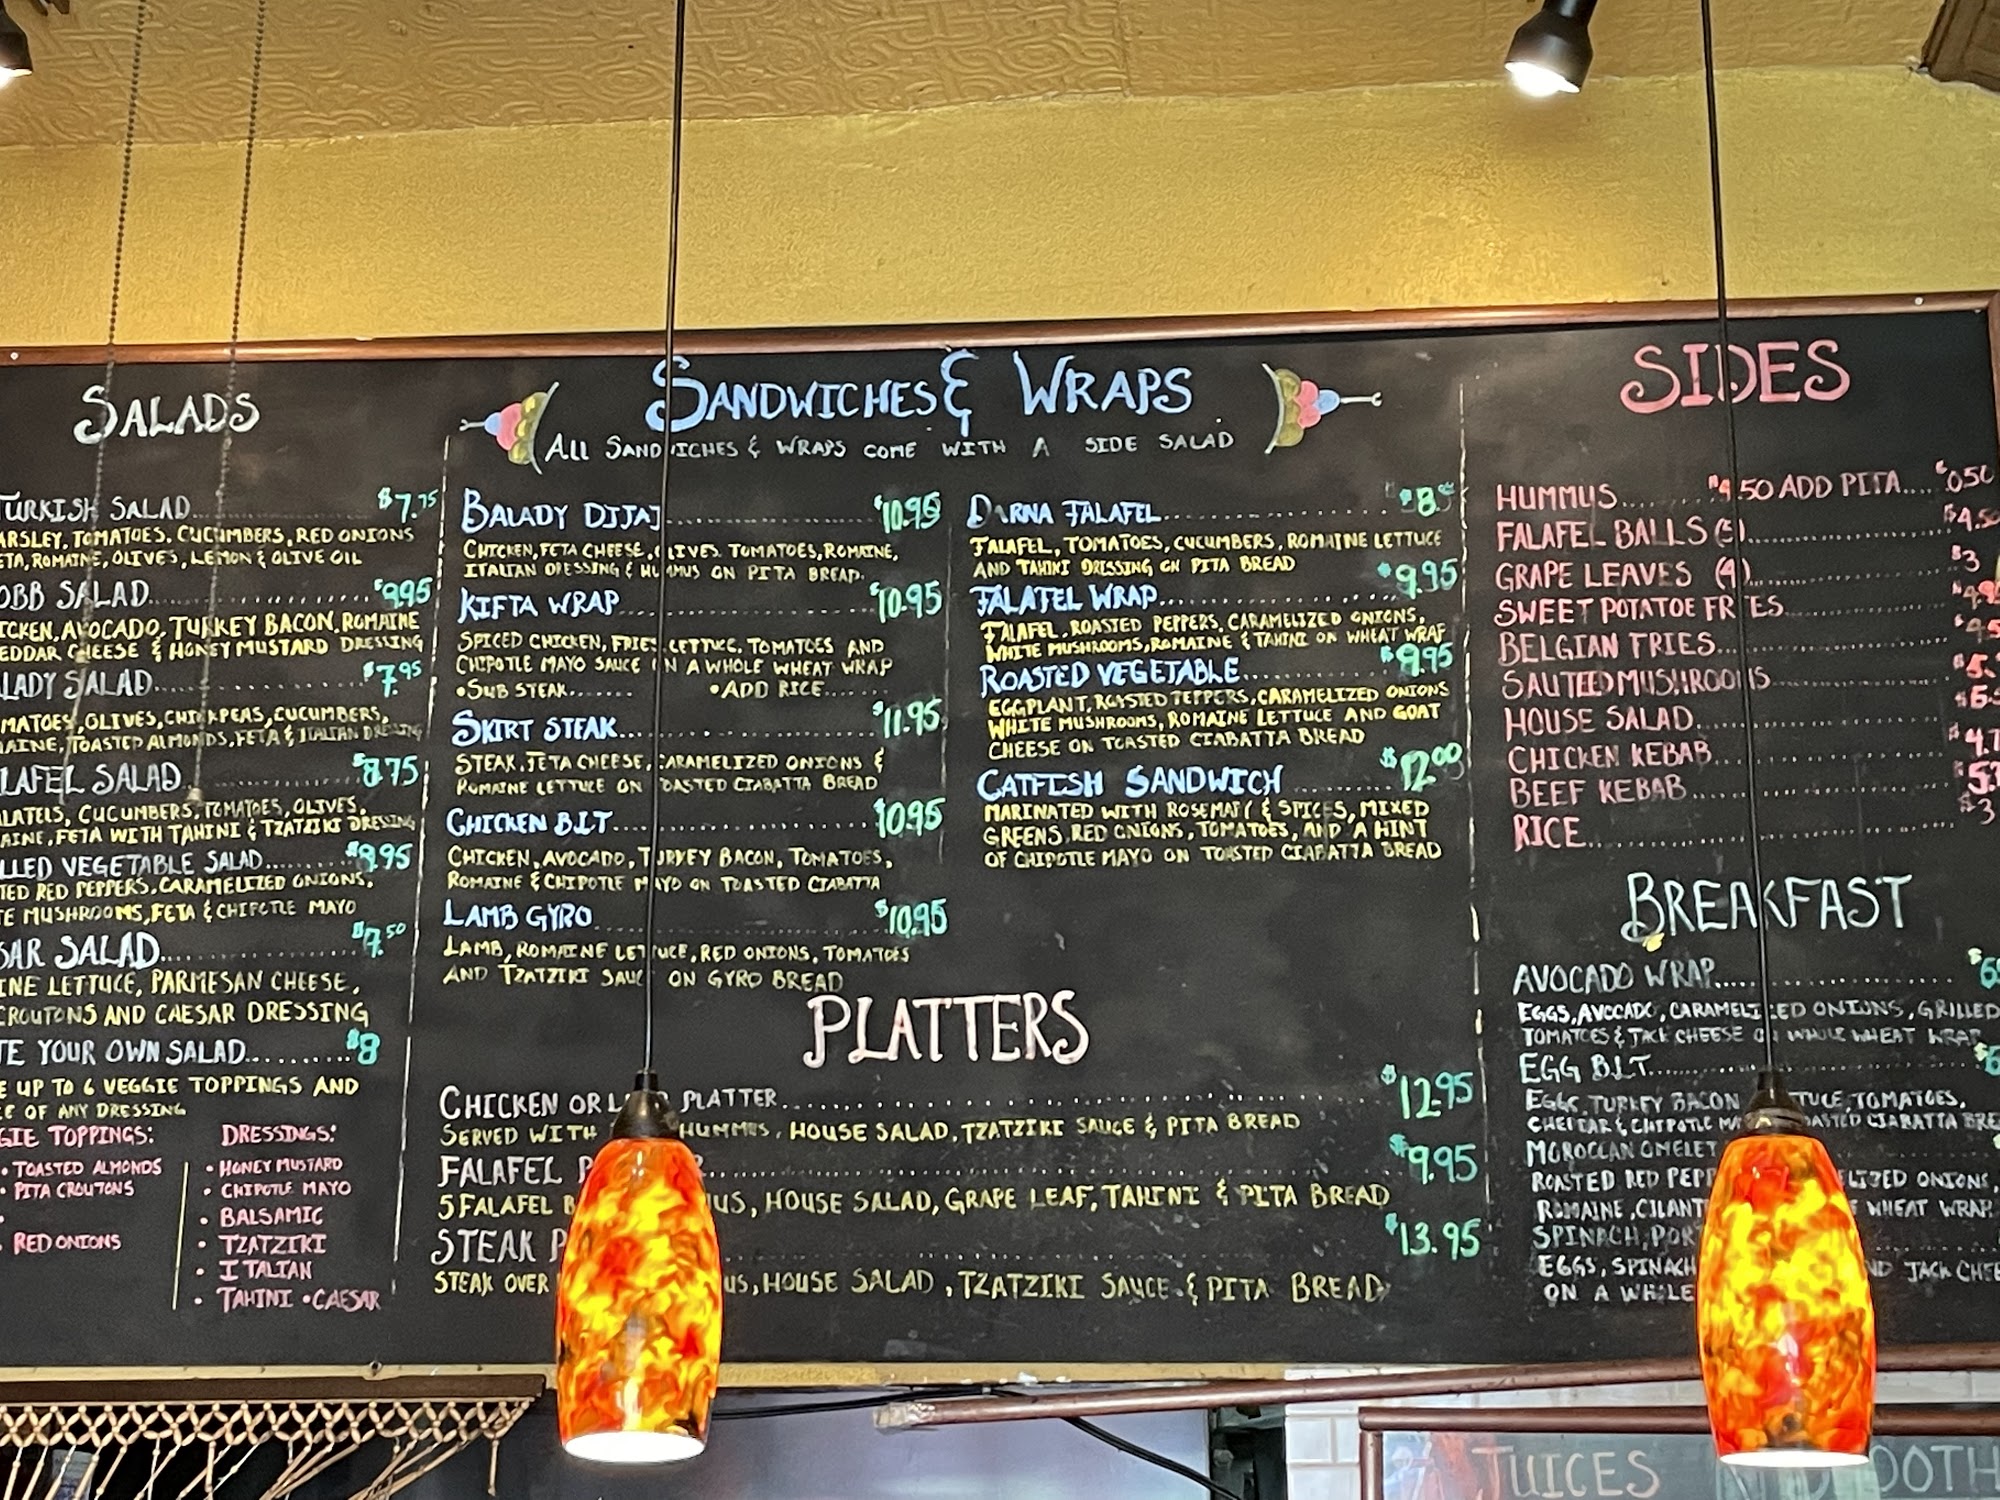 SALADS
TURKISH SALAD $7.75
TOMATOES, CUCUMBERS, RED ONIONS
ROMAINE, OLIVES, LEMON & OLIVE OIL
SALAD $9.95
AVOCADO, TURKEY BACON, ROMAINE
CHEESE & HONEY MUSTARD DRESSING
SALAD $7.95
OLIVES, CHICKPEAS, CUCUMBERS,
TOASTED ALMONDS, FETA & ITALIAN DRESSING
SALAD $8.75
CUCUMBERS, TOMATOES, OLIVES,
FETA WITH TAHINI & TZATZIKI DRESSING
VEGETABLE SALAD $9.95
RED PEPPERS, CARAMELIZED ONIONS,
MUSHROOMS, FETA & CHIPOTLE MAYO
SALAD $7.50
LETTUCE, PARMESAN CHEESE,
CROUTONS AND CAESAR DRESSING
YOUR OWN SALAD $8
UP TO 6 VEGGIE TOPPINGS AND
OF ANY DRESSING
TOPPINGS:
• TOASTED ALMONDS
• PITA CROUTONS
RED ONIONS
DRESSINGS:
• HONEY MUSTARD
• CHIPOTLE MAYO
• BALSAMIC
• TZATZIKI
• ITALIAN
• TAHINI • CAESAR
SANDWICHES & WRAPS
ALL SANDWICHES & WRAPS COME WITH A SIDE SALAD
BALADY DIJAJ $10.95
CHICKEN, FETA CHEESE, OLIVES, TOMATOES, ROMAINE,
ITALIAN DRESSING & HUMMUS ON PITA BREAD.
KIFTA WRAP $10.95
SPICED CHICKEN, FRIES, LETTUCE, TOMATOES AND
CHIPOTLE MAYO SAUCE ON A WHOLE WHEAT WRAP
• SUB STEAK....... • ADD RICE.......
SKIRT STEAK $11.95
STEAK, FETA CHEESE, CARAMELIZED ONIONS &
ROMAINE LETTUCE ON TOASTED CIABATTA BREAD
CHICKEN BLT $10.95
CHICKEN, AVOCADO, TURKEY BACON, TOMATOES,
ROMAINE & CHIPOTLE MAYO ON TOASTED CIABATTA
LAMB GYRO $10.95
LAMB, ROMAINE LETTUCE, RED ONIONS, TOMATOES
AND TZATZIKI SAUCE ON GYRO BREAD
DARNA FALAFEL $8.
FALAFEL, TOMATOES, CUCUMBERS, ROMAINE LETTUCE
AND TAHINI DRESSING ON PITA BREAD
FALAFEL WRAP $9.95
FALAFEL, ROASTED PEPPERS, CARAMELIZED ONIONS,
WHITE MUSHROOMS, ROMAINE & TAHINI ON WHEAT WRAP
ROASTED VEGETABLE $9.95
EGGPLANT, ROASTED PEPPERS, CARAMELIZED ONIONS
WHITE MUSHROOMS, ROMAINE LETTUCE AND GOAT
CHEESE ON TOASTED CIABATTA BREAD
CATFISH SANDWICH $12.00
MARINATED WITH ROSEMARY & SPICES, MIXED
GREENS, RED ONIONS, TOMATOES, AND A HINT
OF CHIPOTLE MAYO ON TOASTED CIABATTA BREAD
PLATTERS
CHICKEN OR PLATTER $12.95
SERVED WITH HUMMUS, HOUSE SALAD, TZATZIKI SAUCE & PITA BREAD
FALAFEL $9.95
5 FALAFEL HOUSE SALAD, GRAPE LEAF, TAHINI & PITA BREAD
STEAK $13.95
STEAK OVER HOUSE SALAD, TZATZIKI SAUCE & PITA BREAD
SIDES
HUMMUS $4.50 ADD PITA $0.50
FALAFEL BALLS (5) $4.50
GRAPE LEAVES (4) $3
SWEET POTATOE FRIES
BELGIAN FRIES
SAUTEED MUSHROOMS
HOUSE SALAD
CHICKEN KEBAB
BEEF KEBAB
RICE $3
BREAKFAST
AVOCADO WRAP
EGGS, AVOCADO, CARAMELIZED ONIONS, GRILLED
TOMATOES & JACK CHEESE ON WHOLE WHEAT WRAP
EGG BLT
EGGS, TURKEY BACON, LETTUCE, TOMATOES,
CHEDDAR & CHIPOTLE TOASTED CIABATTA
MOROCCAN OMELET
ROASTED RED ONIONS,
ROMAINE, WHEAT WRAP
SPINACH,
EGGS, SPINACH JACK
ON A WHOLE
JUICES